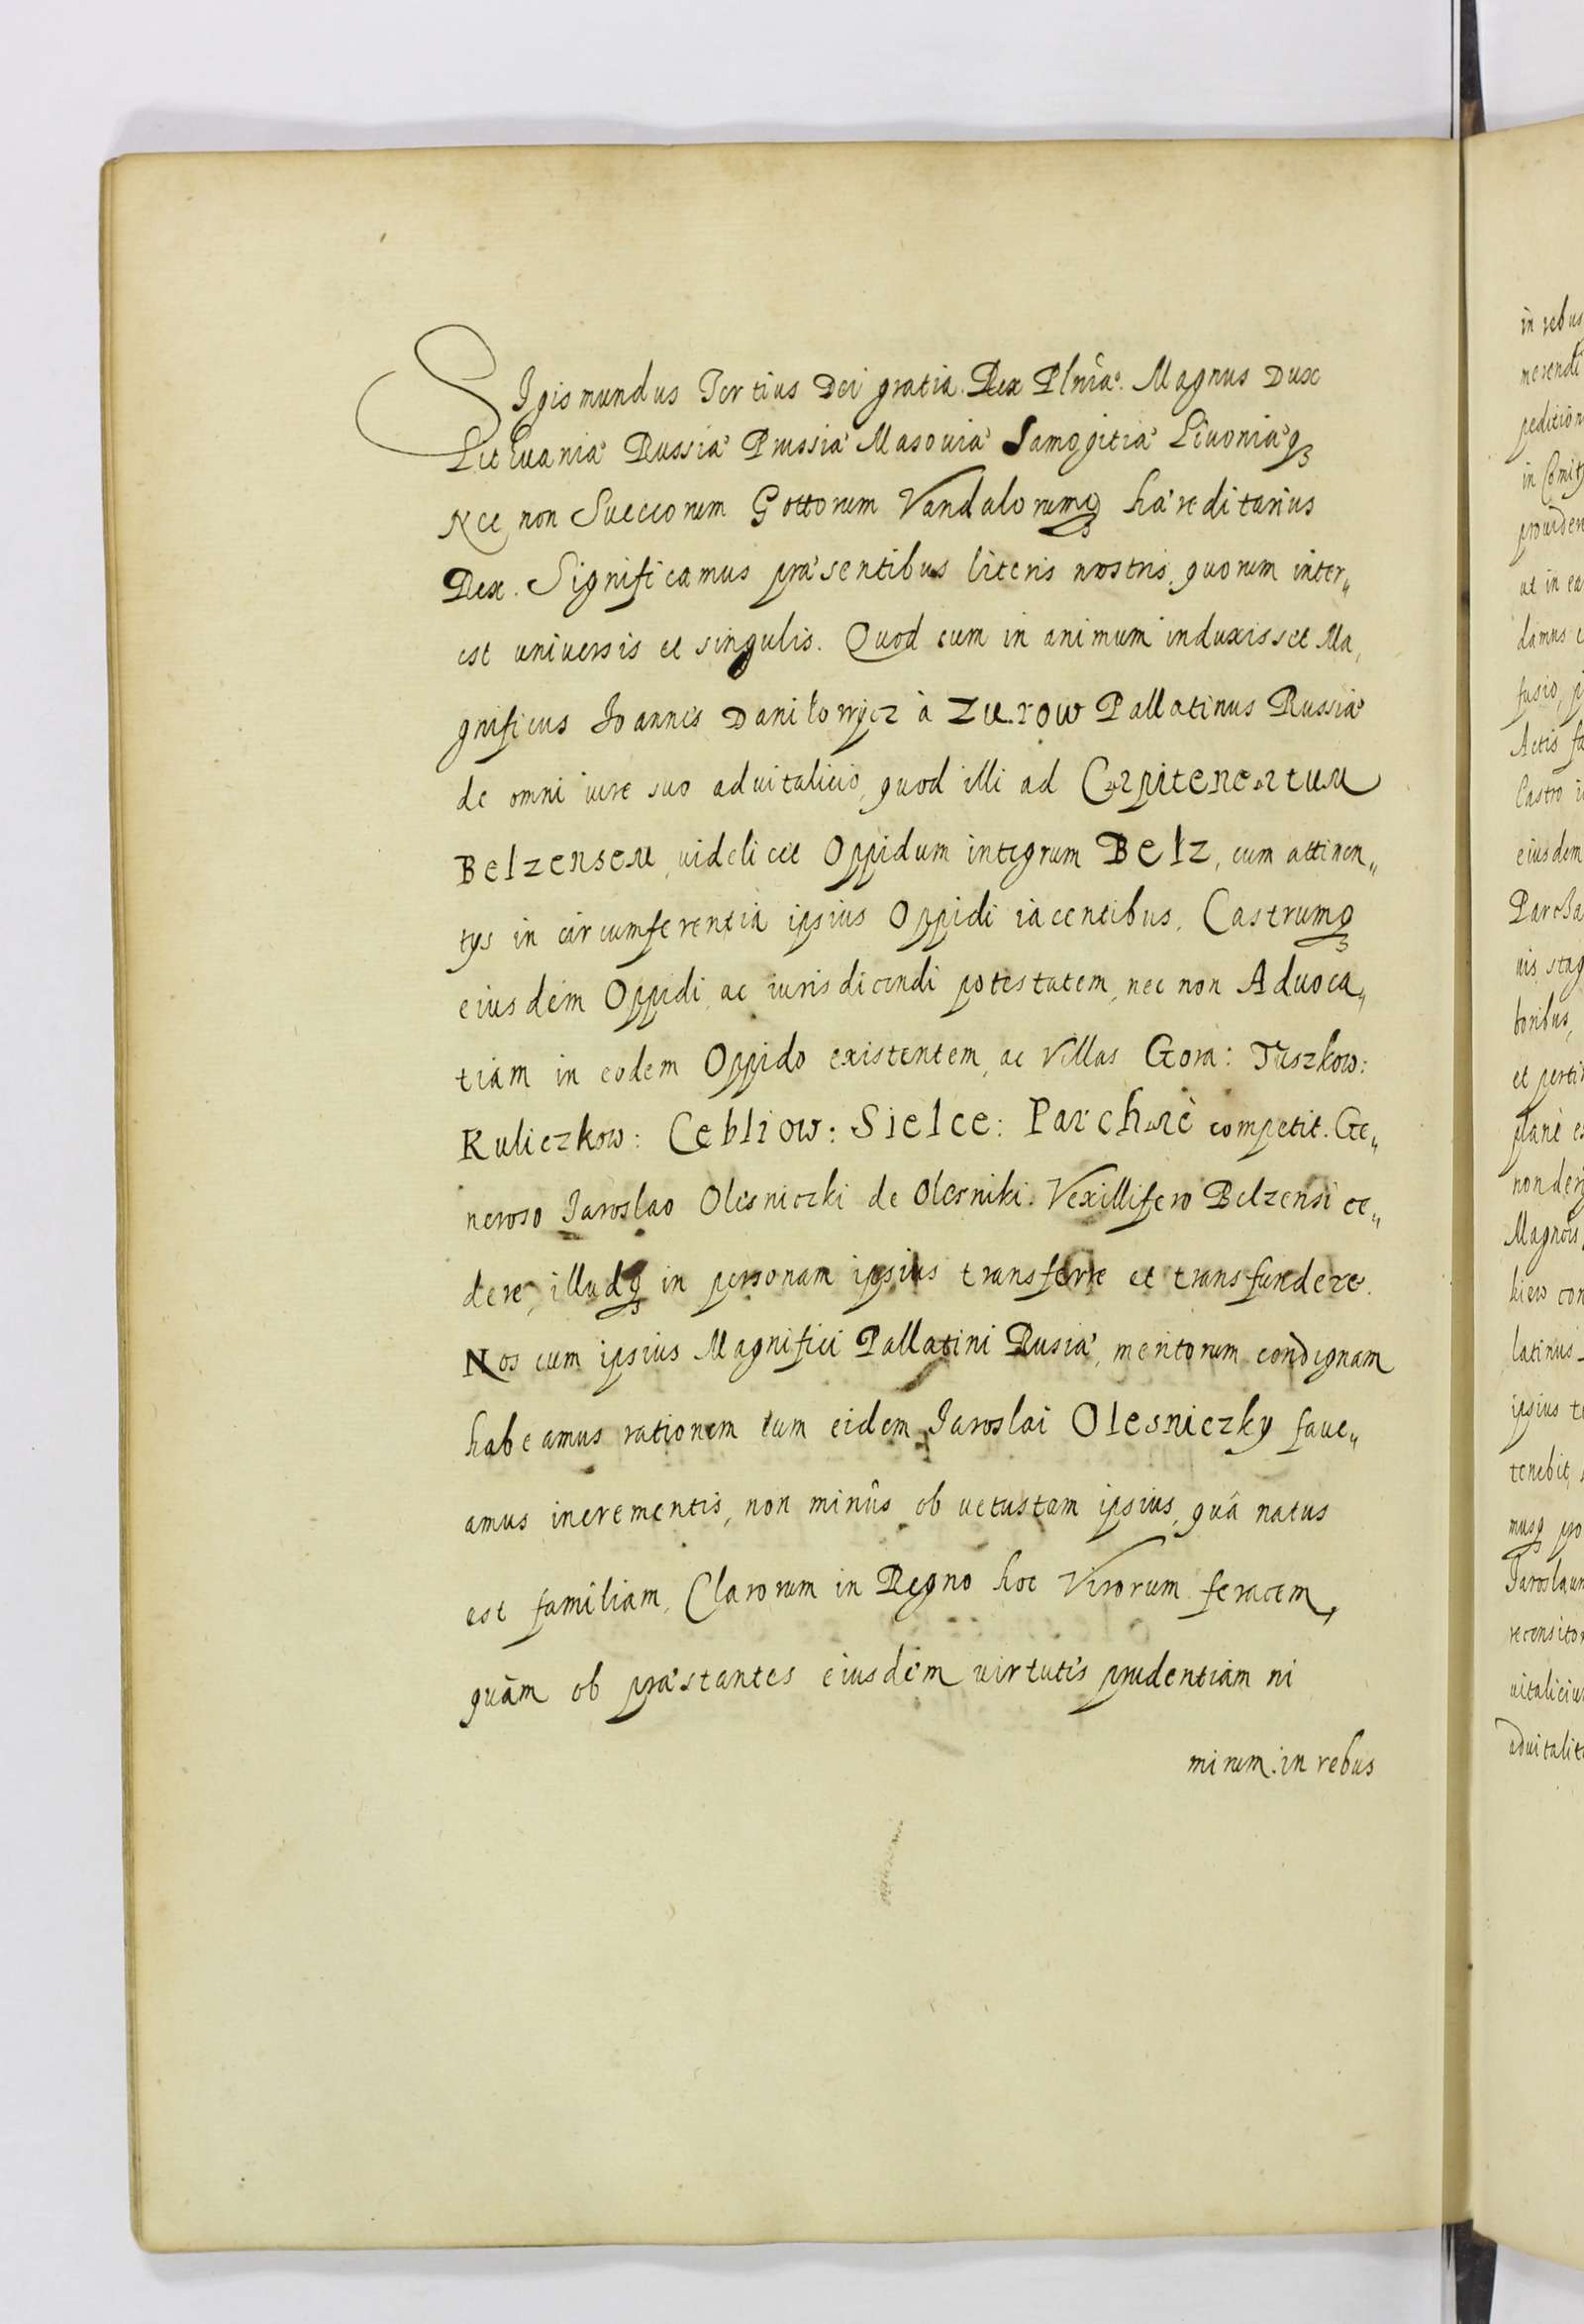 SIgismundus Tertius Dei gratia Rex Plniæ. Magnus Dux
Lithuaniæ Russiæ Prussiæ Masouiæ Samogitiæ Liuoniæq3
Nec non Sueccorum Gottorum Vandalorumq3 hæreditarius
Rex. Significamus præsentibus literis nostris, quorum inter„
est uniuersis et singulis. Quod cum in animum induxisset Ma„
gnificus Joannes Daniłowicz à Zurow Pallatinus Russiæ
de omni iure suo aduitalicio, quod illi ad Capiteneatum
Belzensem, uidelicet Oppidum integrum Belz, cum attinen„
tys in circumferentia ipsius Oppidi iacentibus, Castrumq3
eiusdem Oppidi, ac iurisdicendi potestatem, nec non Aduoca„
tiam in eodem Oppido existentem, ac Villas Gora: Tuszkow:
Kuliczkow: Cebliow: Sielce: Parchacè competit. Ge„
neroso Jaroslao Olesniczki de Olesniki. Vexillifero Belzensi ce„
dere, illudq3 in personam ipsius transferre et transfundere.
Nos cum ipsius Magnifici Pallatini Rusiæ, meritorum condignam
habeamus rationem tum eidem Jaroslai Olesniczky faue„
amus incrementis, non minùs ob uetustam ipsius, quâ natus
est familiam, Clarorum in Regno hoc Virorum feracem,
quàm ob præstantes eiusdem uirtutis prudentiam ni
mirum in rebus
in rebus
merendi
pedition
in Comity
prouiden
ut in ea
damus
fusio,
Actis fa
Castro
eiusdem
Parcha
uis stag
boribus,
et perti
planè
Magnus
kiew con
latinus
ipsius
tenebit,
musq3 pro
Jaroslaum
recensitor
uitaliciu
aduitalit